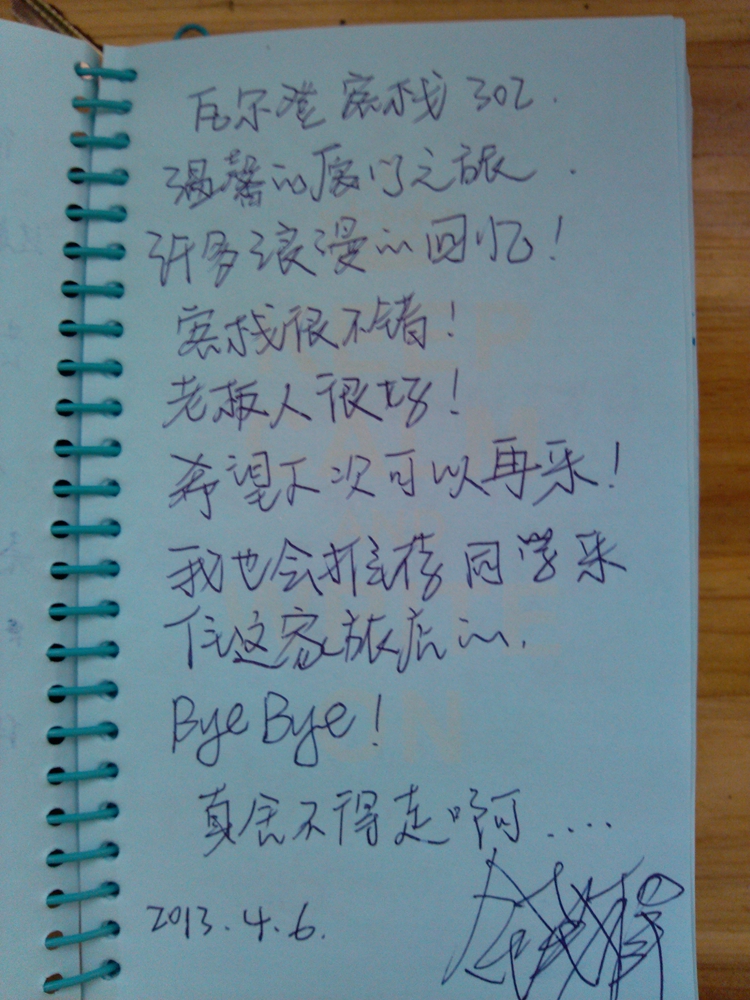 瓦尔登客栈 302.
温馨的厦门之旅.
许多浪漫的回忆!
客栈很不错!
老板人很好!
希望下次可以再来!
我也会推荐同学来
住这家旅店的.
Bye Bye!
真舍不得走啊....
2013.4.6.